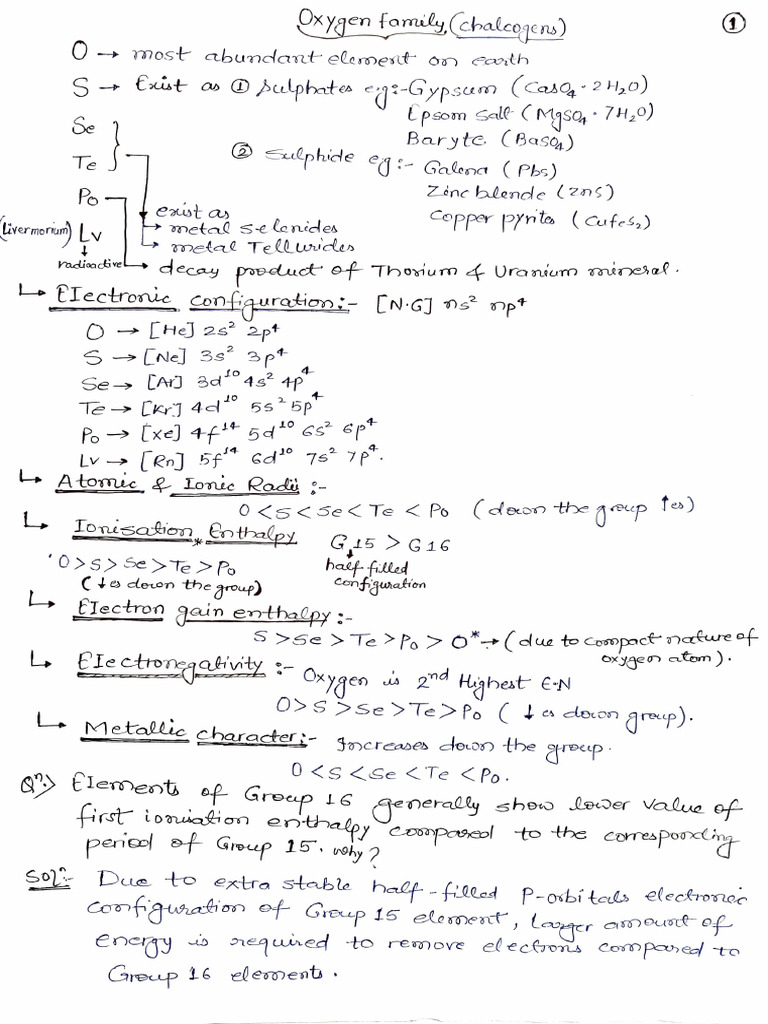 Oxygen family (chalcogens) ①
O → most abundant element on earth
S → Exist as ① Sulphates eg:- Gypsum (CaSO₄·2H₂O)
Epsom salt (MgSO₄·7H₂O)
Baryte (BaSO₄)
② Sulphide eg:- Galena (Pbs)
Zinc blende (ZnS)
Copper pyrites (CuFeS₂)
Se
Te
Po
(Livermorium) Lv
exist as
→ metal selenides
→ metal Tellurides
radioactive → decay product of Thorium & Uranium mineral.
↳ Electronic configuration:- [N·G] ns² np⁴
O → [He] 2s² 2p⁴
S → [Ne] 3s² 3p⁴
Se → [Ar] 3d¹⁰ 4s² 4p⁴
Te → [Kr] 4d¹⁰ 5s² 5p⁴
Po → [Xe] 4f¹⁴ 5d¹⁰ 6s² 6p⁴
Lv → [Rn] 5f¹⁴ 6d¹⁰ 7s² 7p⁴.
↳ Atomic & Ionic Radii :-
O < S < Se < Te < Po (down the group ↑es)
↳ Ionisation Enthalpy G 15 > G 16
O > S > Se > Te > Po
(↓es down the group)
half filled
configuration
↳ Electron gain enthalpy:-
S > Se > Te > Po > O* → (due to compact nature of
oxygen atom).
↳ Electronegativity :- Oxygen is 2nd Highest E·N
O > S > Se > Te > Po (↓es down group).
↳ Metallic character:- Increases down the group.
O < S < Se < Te < Po.
Qⁿ.> Elements of Group 16 generally show lower value of
first ionisation enthalpy compared to the corresponding
period of Group 15. why?
Solⁿ:- Due to extra stable half-filled P-orbitals electronic
configuration of Group 15 element, larger amount of
energy is required to remove electrons compared to
Group 16 elements.